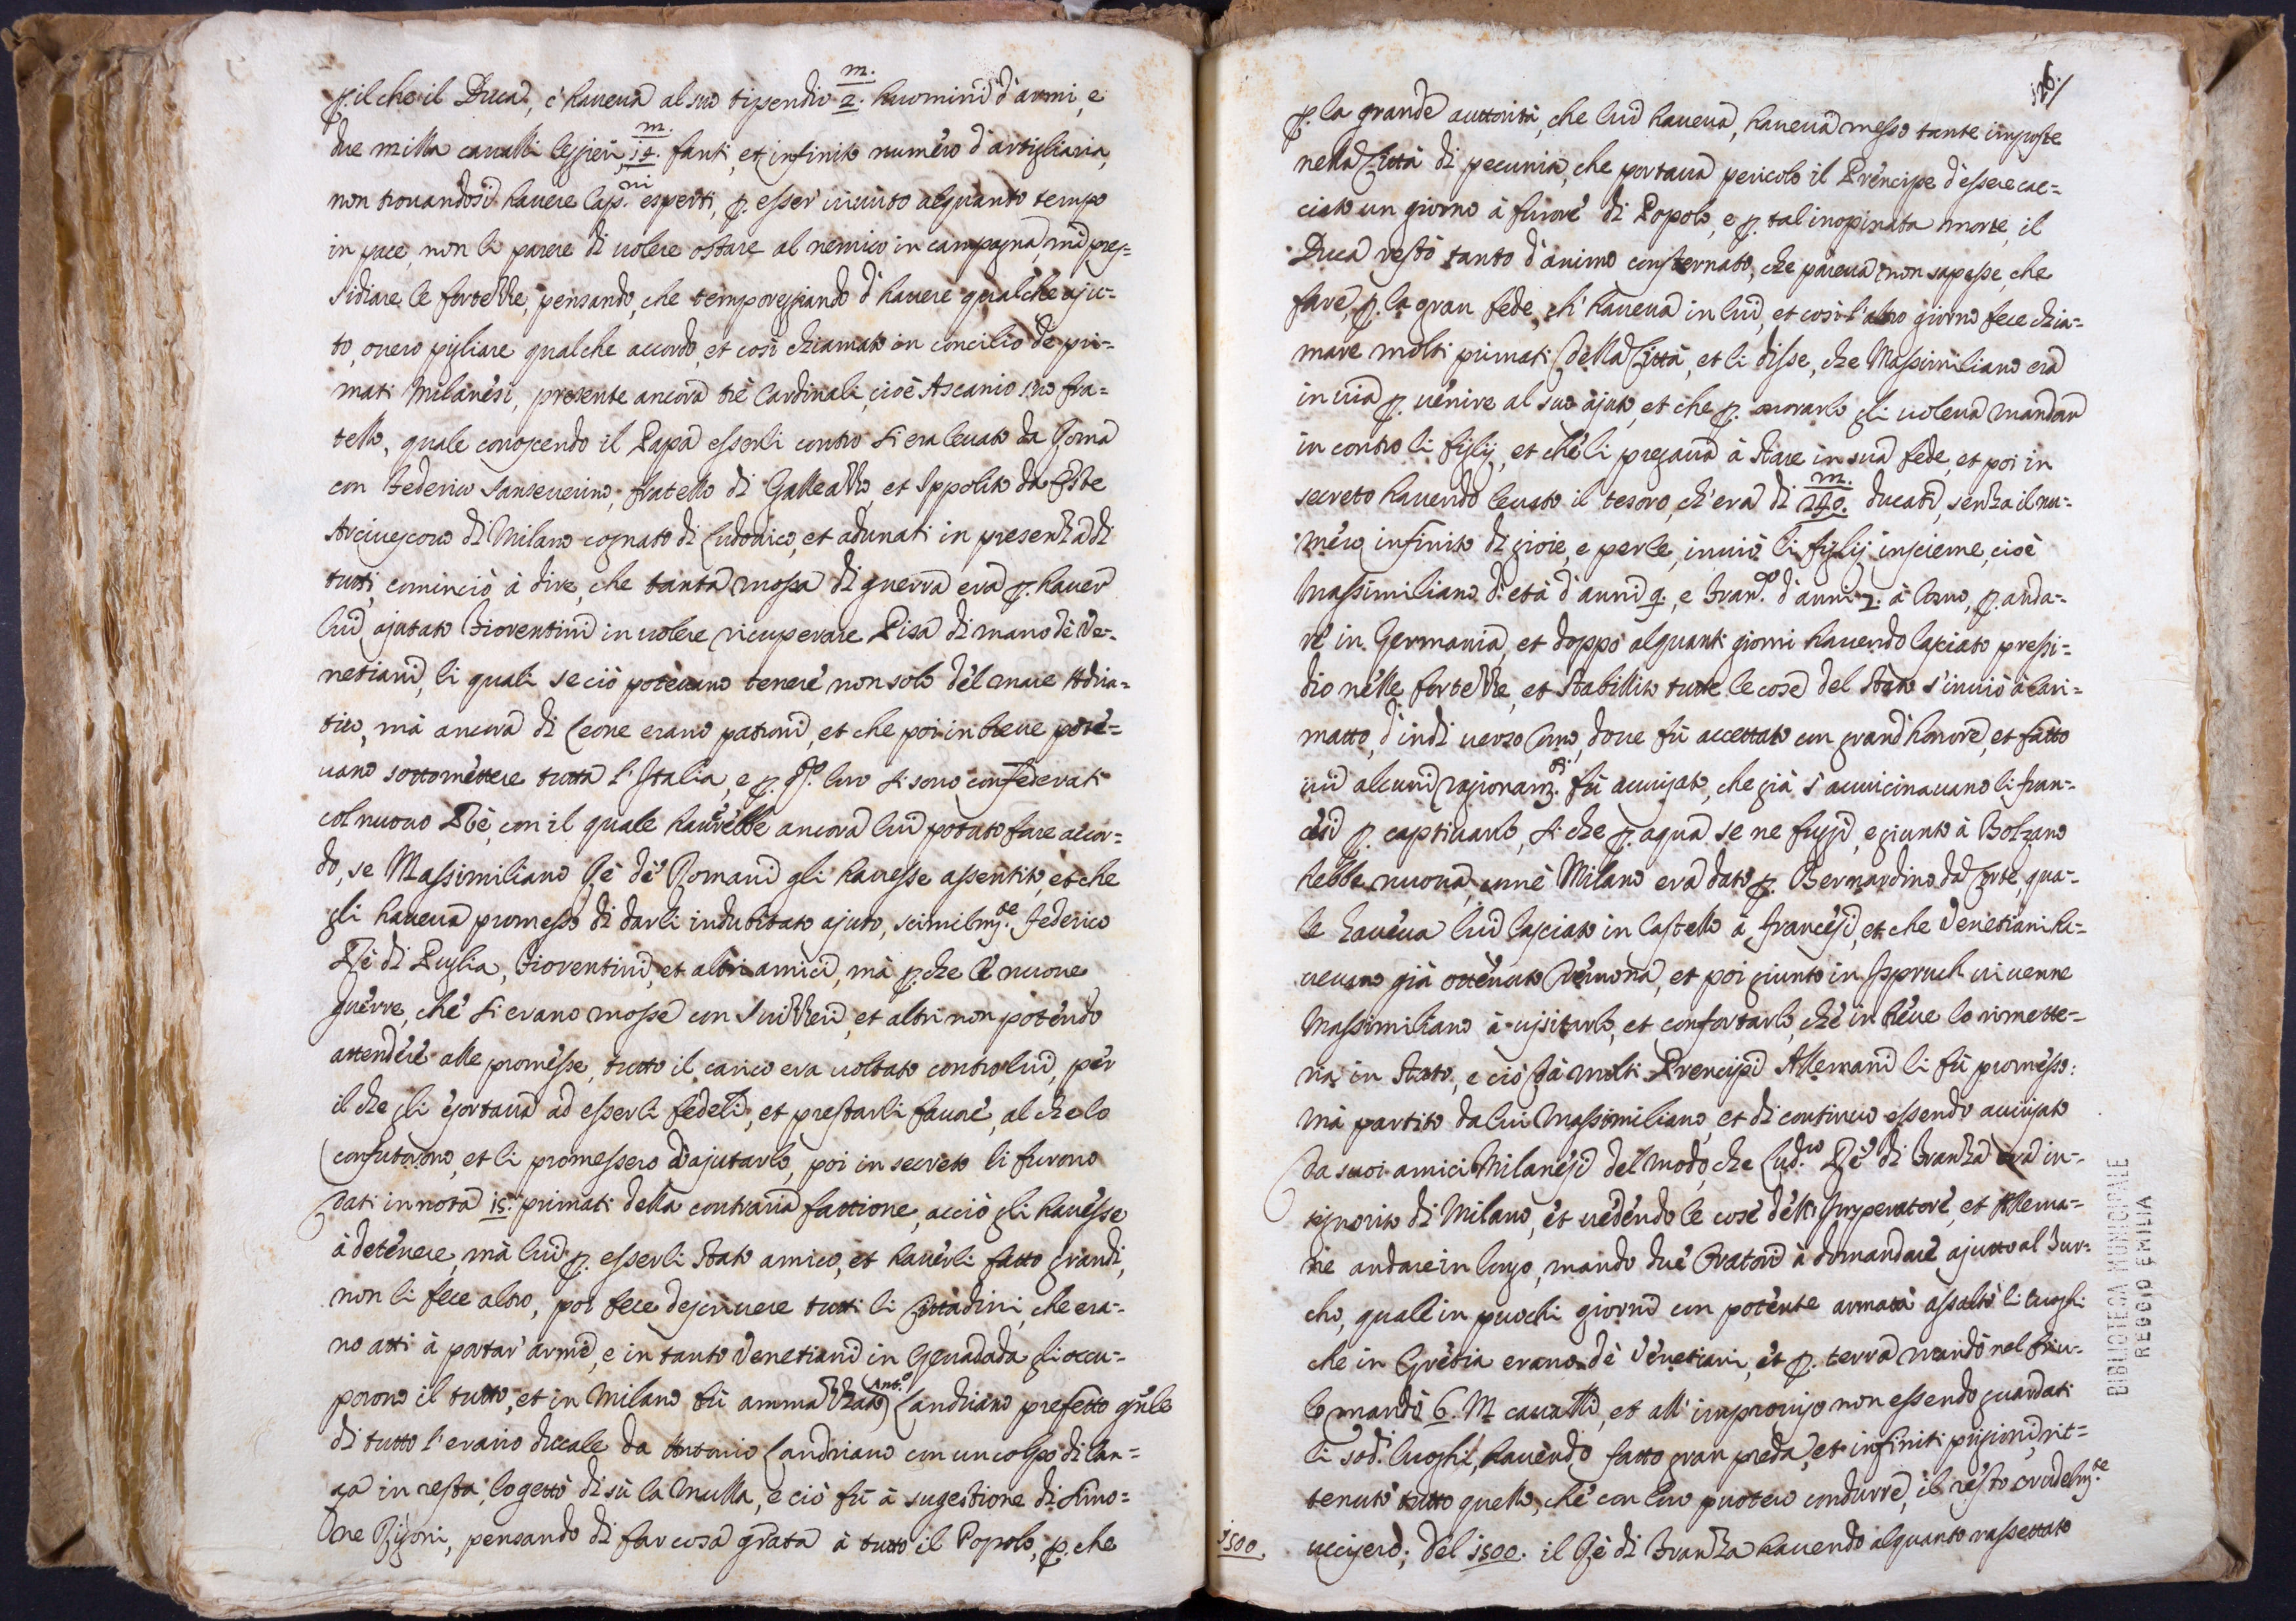 p. il che il Duca, c'haueua al suo stipendio 2.m. huomini d'armi, e
due milla caualli leggieri 14.m. fanti, et infinito numero d'artigliaria,
non trouandosi hauere Cap.ni esperti, p. esser uiuuto alquanto tempo
in pace, non li parere di uolere ostare al nemico in campagna, mà pres-
sidiare le fortezze, pensando, che temporeggiando d'hauere qualche aju-
to, ouero pigliare qualche accordo, et così chiamato in concilio de pri-
mati Milanesi, presente ancora trè Cardinali, cioè Ascanio suo fra-
tello, quale conoscendo il Papa esserli contro si era leuato da Roma
con Federico Sanseuerino, fratello di Galleazzo, et Ippolito da Este
Arciuescouo di Milano cognato di Ludouico, et adunati in presenza di
tutti, cominciò à dire, che tanta mossa di guerra era p. hauer
lui ajutato Fiorentini in uolere ricuperare Pisa di mano de Ve-
netiani, li quali se ciò poteuano tenere non solo del mare Adria-
tico, mà ancora di Leone erano patroni, et che poi in breue pote-
uano sottomettere tutta l'Italia, e p. q.to loro si sono confederati
col nuouo Rè, con il quale haurebbe ancora lui potuto fare accor-
do, se Massimiliano Rè de Romani gli hauesse assentito, et che
gli haueua promesso di darli indubitato ajuto, scimilm.te Federico
Rè di Puglia, Fiorentini, et altri amici, mà p.che le nuoue
guerre, che si erano mosse con Suizzeri, et altri non potendo
attendere alle promesse, tutto il carico era uoltato contro lui, per
il che gli esortaua ad esserli fedeli, et prestarli fauore, al che lo
confutorono, et li promessero d'ajutarlo, poi in secreto li furono
dati in nota 15. primati della contraria fattione, acciò gli hauesse
à detenere, mà lui p. esserli stato amico, et hauerli fatto grandi,
non li fece altro, poi fece descriuere tutti li Cittadini, che era-
no atti à portar armi, e in tanto Venetiani in Geradada gli occu-
porono il tutto, et in Milano fù ammazzato Ant.o Landriano prefetto gnle
di tutto l'erario ducale da Antonio Landriano con un colpo di lan-
za in resta, lo gettò di sù la Mulla, e ciò fù à sugestione di Simo-
ne Rigoni, pensando di far cosa grata à tutto il Popolo, p.che
126.
p. la grande auttorità, che lui haueua, haueua messo tante imposte
nella Città di pecunia, che portaua pericolo il Prencipe d'essere cac-
ciato un giorno à furore di Popolo, e p. tal inopinata morte, il
Duca restò tanto d'animo consternato, che pareua non sapesse, che
fare, p. la gran fede, ch'haueua in lui, et così l'altro giorno fece chia-
mare molti primati della Città, et li disse, che Massimiliano era
in uia p. uenire al suo ajuto, et che p. onorarlo gli uoleua mandar
in contro li figlij, et che li pregaua à stare in sua fede, et poi in
secreto hauendo leuato il tesoro, ch'era di 240.m. ducati, senza il nu-
mero infinito di gioie, e perle, inuiò li figlij insieme, cioè
Massimiliano d'età d'anni 9., e Fran.co d'anni 7. à Como, p. anda-
re in Germania, et doppo alquanti giorni hauendo lasciato pressi-
dio nelle fortezze, et stabillito tutte le cose del Stato s'inuiò à Cari-
matto, d'indi uerso Como, doue fù accettato con grand'honore, et fatto
iui alcuni ragionam.ti fù auuisato, che già s'auuicinauano li fran-
cesi p. captiuarlo, si che p. aqua se ne fuggì, e giunto à Bolzano
hebbe nuoua, come Milano era dato p. Bernardino da Corte, qua-
le haueua lui lasciato in Castello à francesi, et che Venetiani ha-
ueuano già ottenuto Cremona, et poi giunto in Ispruch ui uenne
Massimiliano à uisitarlo, et confortarlo, che in breue lo rimette-
ria in stato, e ciò da molti Prencipi Allemani li fù promesso:
mà partito da lui Massimiliano, et di continuo essendo auuisato
da suoi amici Milanesi del modo, che Lud.co Rè di Franza era in-
signorito di Milano, et uedendo le cose dell'Imperatore, et Allema-
nie andare in lungo, mandò due Oratori à domandare ajutto al Tur-
cho, quale in puochi giorni con potente armata assaltò li luoghi
che in Gretia erano de Venetiani, et p. terra mandò nel friu-
lo mandò 6. M caualli, et all'improuiso non essendo guardati
li sod.i luoghi, hauendo fatto gran preda, et infiniti prigioni, rit-
tenuto tutto quello, che con loro puotero condurre, il resto crudelm.te
uccisero; del 1500. il Rè di Franza hauendo alquanto rassettato
1500.
BIBLIOTECA MUNICIPALE
REGGIO EMILIA